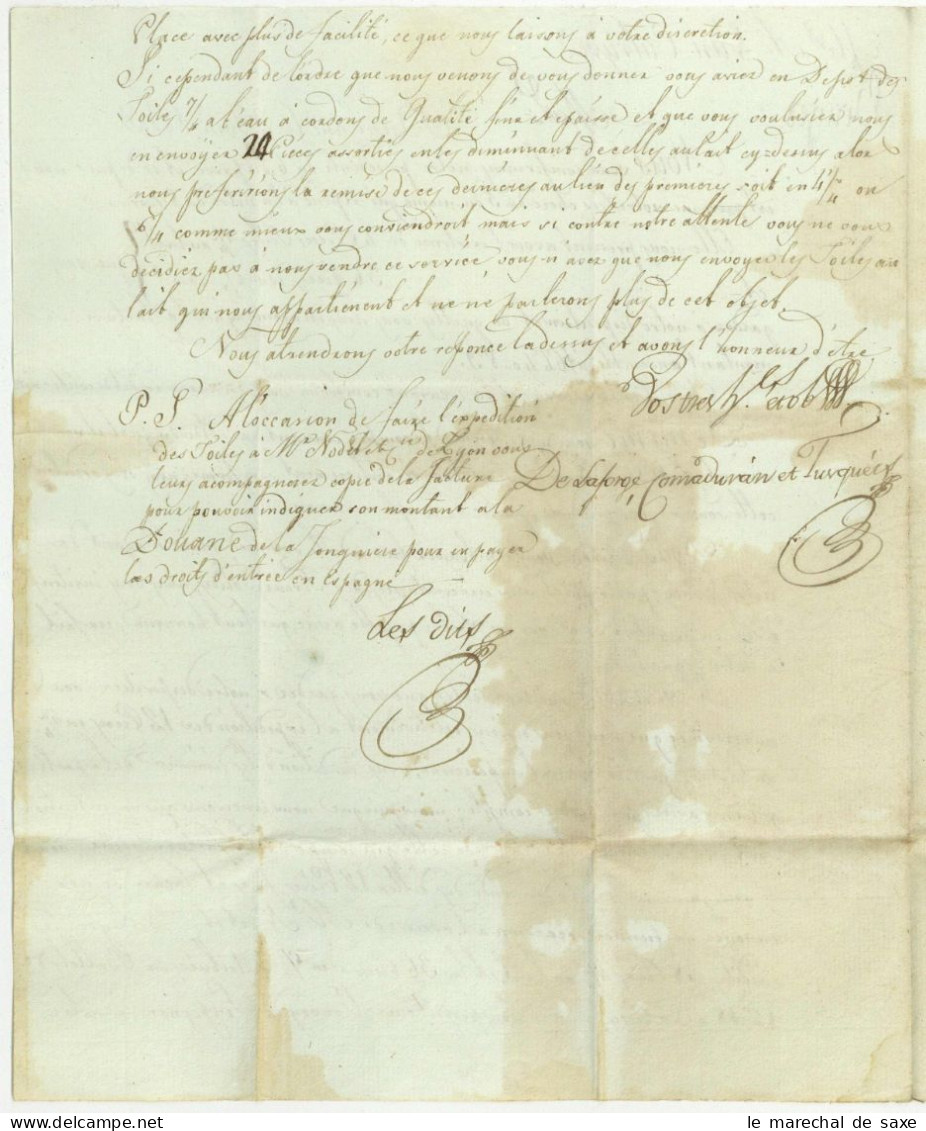 Place avec plus de facilité, ce que nous laisons à votre discretion.
Si cependant de lordre que nous venons de vous donner vous aviez en Depot des
Toiles 7/8 a l'eau à cordons de Qualité fine et épaisse et que vous voulusiez nous
en envoyer 24 Pieces assorties en les diminuant de celles au lait cy-desus alor
nous preferirions la remise de ces dernieres au lieu des premieres soit en 4/4 ou
6/4 comme mieux vous conviendroit mais si contre notre attente vous ne vous
decidiez pas à nous rendre ce servicé vous n'avez que nous envoyer les Toiles au
lait qui nous appartiénent et ne ne parlerons plus de cet objet.
Nous atendrons votre reponce la desus et avons l'honneur d'étre
Vostres h.les et ob
P. S. A l'occasion de faire l'expedition
des Toiles à Mr Nodet et Cie de Lyon vous
leurs acompagnerez copie de la facture
pour pouvoir indiquer son montant a la
Douane de la Jonquiere pour en payer
las droits d'entrée en Espagne
De Laforge Comaduran et Turquéts
Les dits
le marechal de saxe